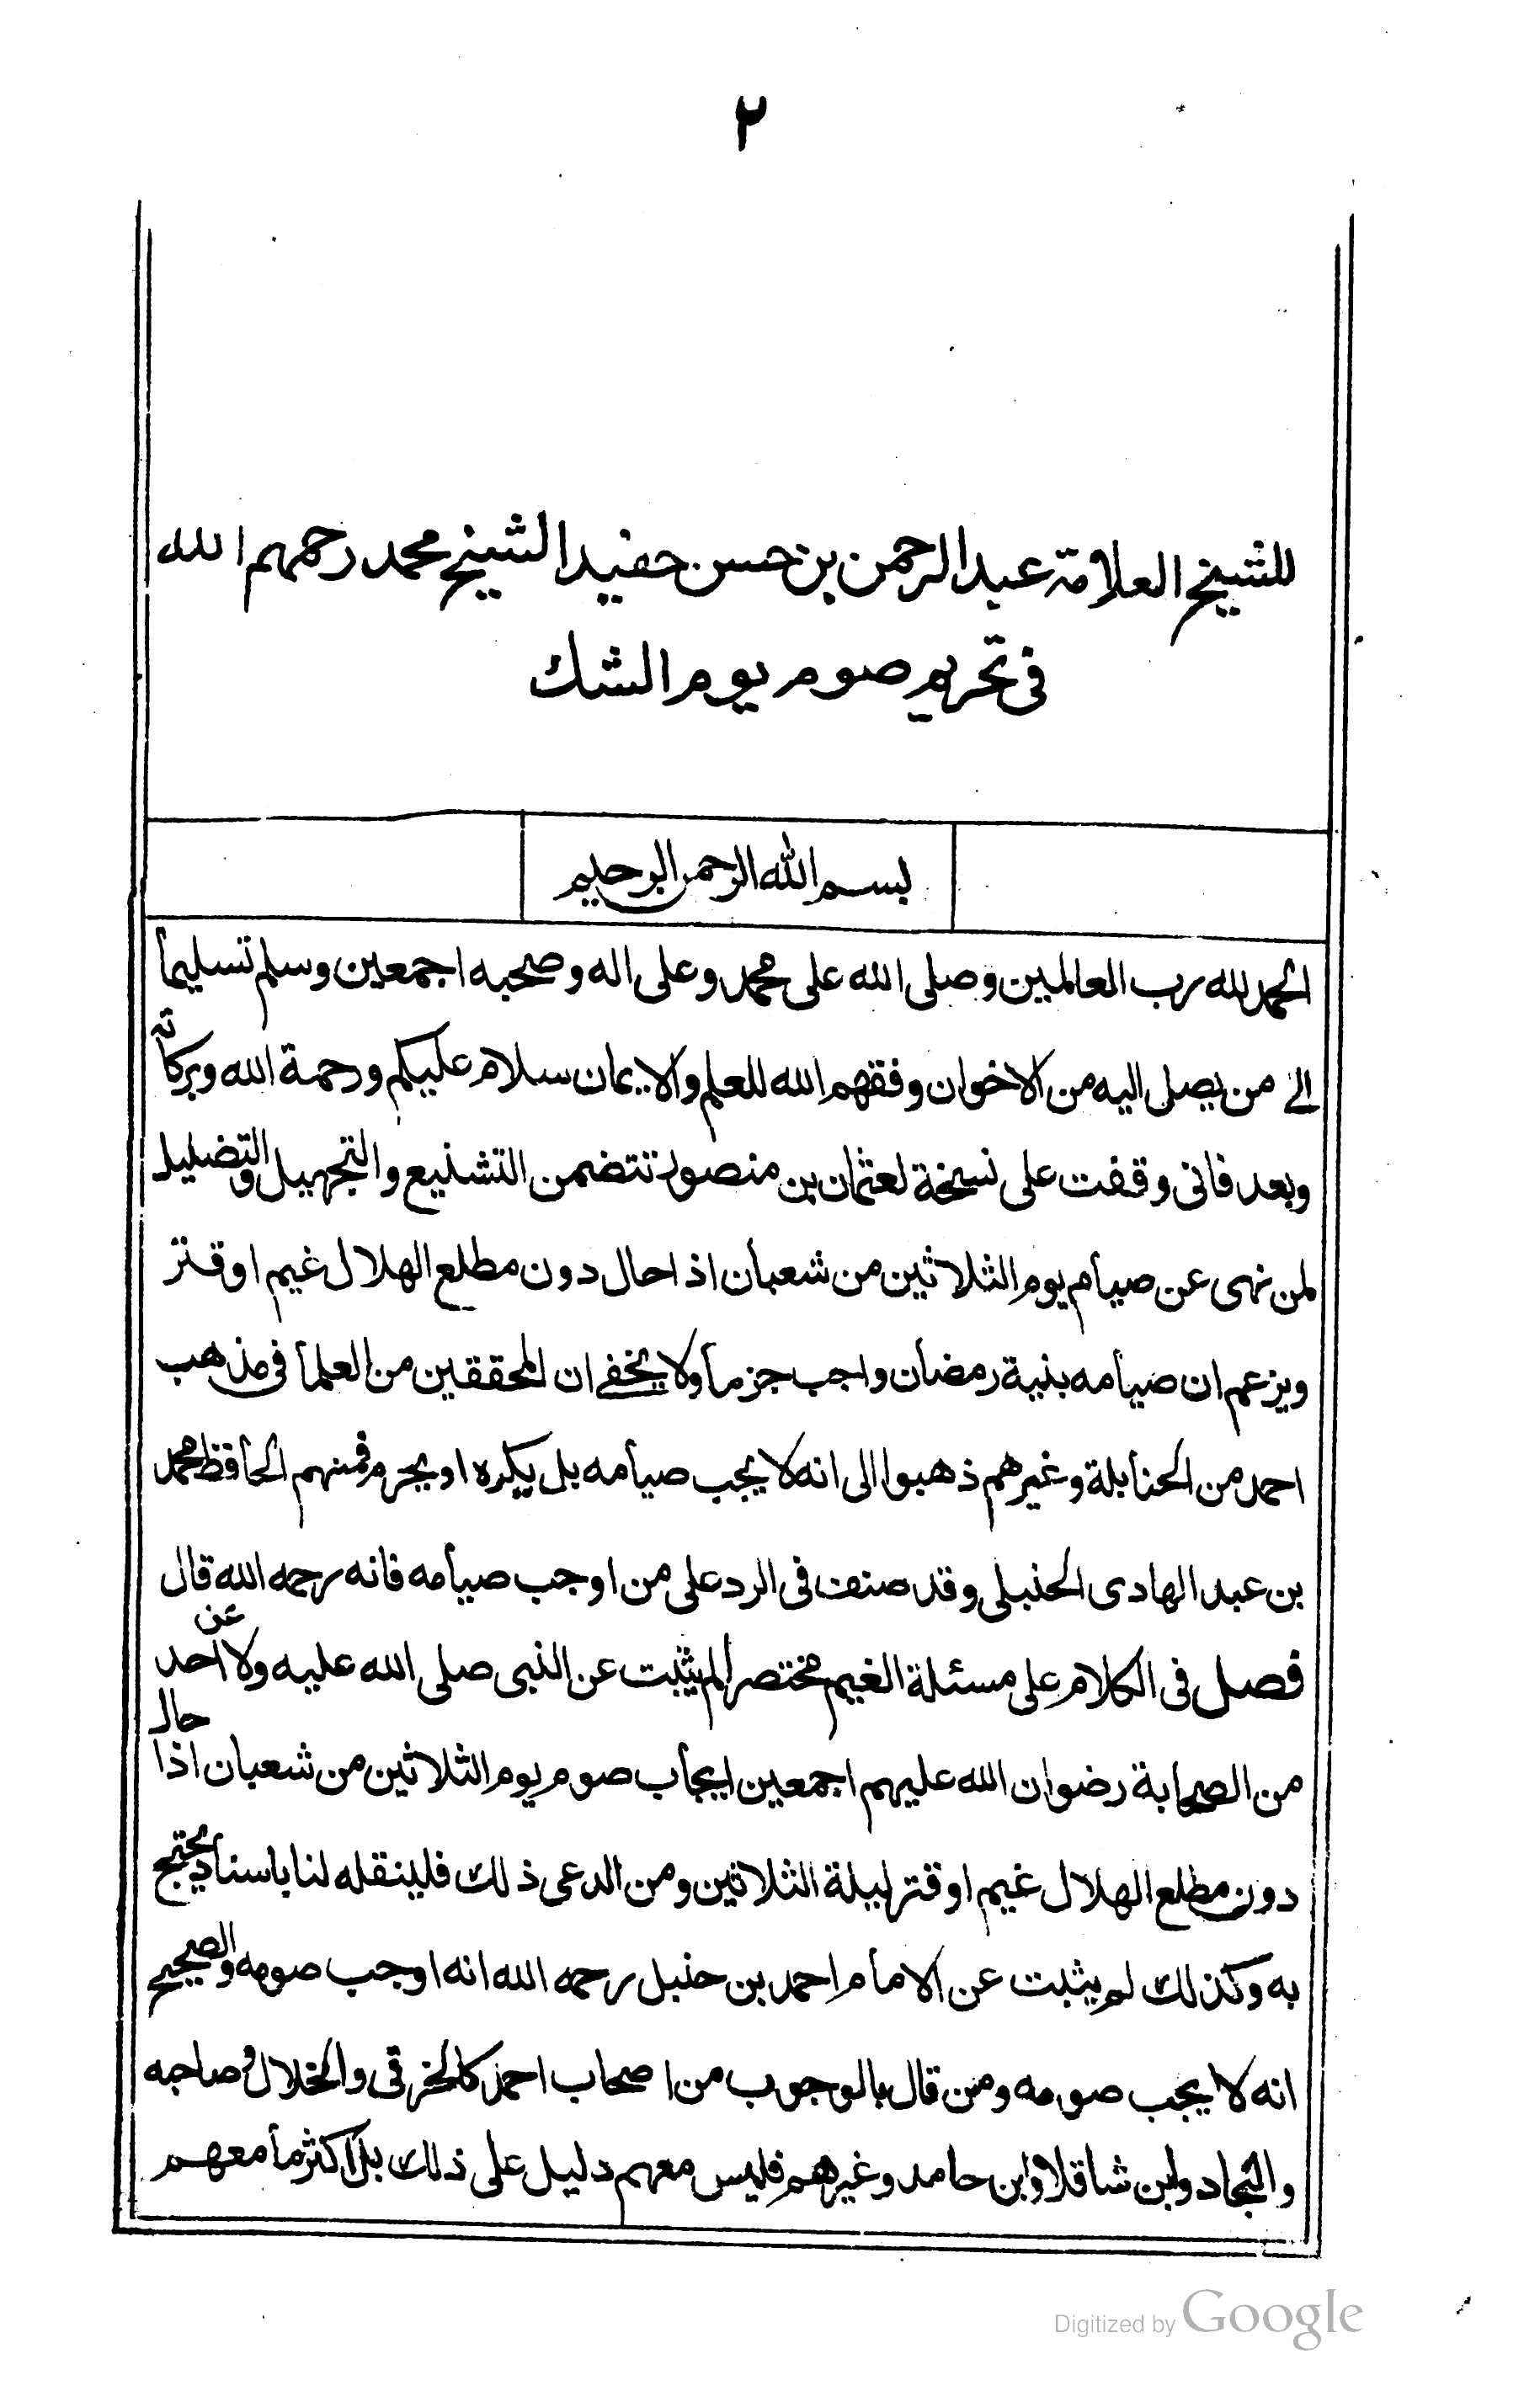 ٢
للشيخ العلامة عبد الرحمن بن حسن حفيد الشيخ محمد رحمهم الله
في تحريم صوم يوم الشك
بسم الله الرحمن الرحيم
الحمد لله رب العالمين وصلى الله على محمد وعلى اله وصحبه اجمعين وسلم تسليماً
الى من يصل اليه من الاخوان وفقهم الله للعلم والايمان سلام عليكم ورحمة الله وبركاته
وبعد فانى وقفت على نسخة لعثمان بن منصور تتضمن التشنيع والتجهيل والتضليل
لمن نهى عن صيام يوم الثلاثين من شعبان اذا حال دون مطلع الهلال غيم او قتر
ويزعم ان صيامه بنية رمضان واجب جزما ولا يخفى ان المحققين من العلما في مذهب
احمد من الحنابلة وغيرهم ذهبوا الى انه لا يجب صيامه بل يكره او يحرم فمنهم الحافظ محمد
بن عبد الهادى الحنبلى وقد صنف فى الرد على من اوجب صيامه فانه رحمه الله قال
فصل فى الكلام على مسئلة الغيم مختصر لم يثبت عن النبى صلى الله عليه ولا عن احد
من الصحابة رضوان الله عليهم اجمعين ايجاب صوم يوم الثلاثين من شعبان اذا حال
دون مطلع الهلال غيم او قتر ليلة الثلاثين ومن ادعى ذلك فلينقله لنا باسناد يحتج
به وكذلك لم يثبت عن الامام احمد بن حنبل رحمه الله انه اوجب صومه والصحيح
انه لا يجب صومه ومن قال بالوجوب من اصحاب احمد كالخرقى والخلال وصاحبه
والنجاد وابن شاقلا وابن حامد وغيرهم فليس معهم دليل على ذلك بل اكثر ما معهم
Digitized by Google